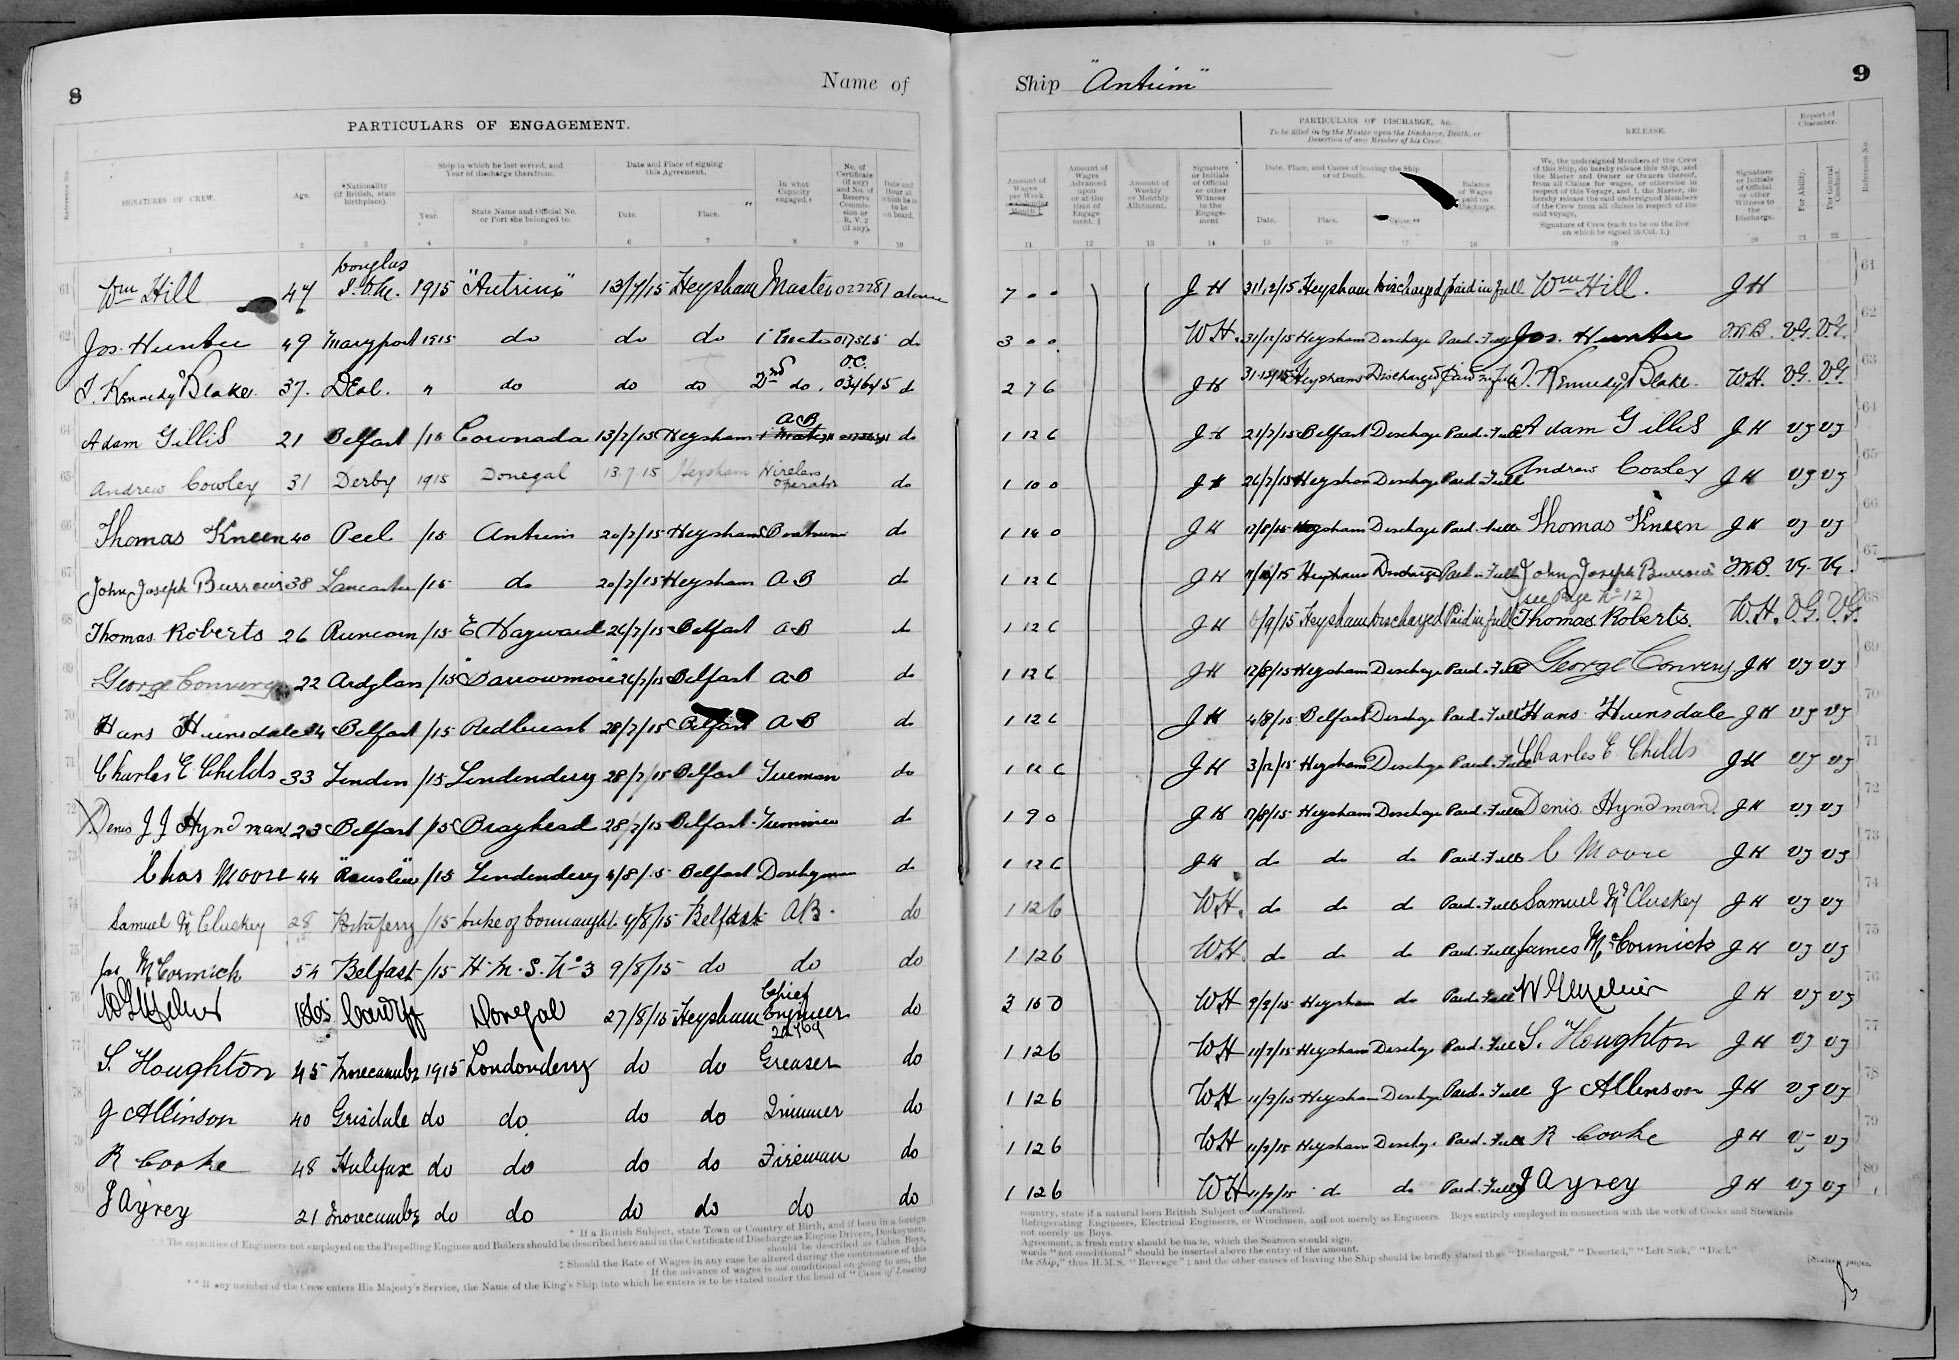 8
Name of
Ship "Antrim"
9
PARTICULARS OF ENGAGEMENT.
PARTICULARS OF DISCHARGE, &c.
To be filled in by the Master upon the Discharge, Death, or Desertion of any Member of his Crew.
RELEASE.
Report of Character.
Reference No.
SIGNATURES OF CREW.
Age.
*Nationality (if British, state birthplace).
Ship in which he last served, and Year of discharge therefrom.
Year.
State Name and Official No. or Port she belonged to.
Date and Place of signing this Agreement.
Date.
Place.
In what Capacity engaged.†
No. of Certificate (if any) and No. of Reserve Commission or R. V. 2 (if any).
Date and Hour at which he is to be on board.
Amount of Wages per Week
Amount of Wages Advanced upon or at the time of Engagement.
Amount of Weekly or Monthly Allotment.
Signature or Initials of Official or other Witness to the Engagement
Date, Place, and Cause of leaving the Ship or of Death.
Date.
Place.
Cause.**
Balance of Wages paid on Discharge.
We, the undersigned Members of the Crew of this Ship, do hereby release this Ship, and the Master and Owner or Owners thereof, from all Claims for wages, or otherwise in respect of this Voyage, and I, the Master, do hereby release the said undersigned Members of the Crew from all claims in respect of the said voyage.
Signature of Crew (each to be on the line on which be signed in Col. 1.)
Signature or Initials of Official or other Witness to the Discharge.
For Ability.
For General Conduct.
Reference No.
1 2 3 4 5 6 7 8 9 10 11 12 13 14 15 16 17 18 19 20 21 22
61 Wm Hill 47 Douglas 1915 "Antrim" 13/7/15 Heysham Master 022281 7 - - J H 31/12/15 Heysham Discharged Paid in full Wm Hill. J H 61
62 Jos. Hunter 49 Maryport 1915 do do do do 3 - - W.H. 31/12/15 Heysham Discharge Paid Full Jos. Hunter V.G. V.G. 62
63 J. Kennedy Blake. 37. Deal. " do do do 2nd do. O.C. 034645 do 2 7 6 J H 31.12/15 Heysham Discharged Paid in full J. Kennedy Blake. W.H. V.G. V.G. 63
64 Adam Gillis 21 Belfast /15 Coronada 13/7/15 Heysham AB do 1 12 6 J H 21/7/15 Belfast Discharge Paid Full Adam Gillis J H VG VG 64
65 Andrew Cowley 31 Derby 1915 Donegal 13.7.15 Heysham Wireless operator do 1 10 0 J H 26/7/15 Heysham Discharge Paid Full Andrew Cowley J H VG VG 65
66 Thomas Kneen 40 Peel /15 Antrim 20/7/15 Heysham Boatswain do 1 14 0 J H 17/8/15 Heysham Discharge Paid Full Thomas Kneen J H VG VG 66
67 John Joseph Burrow 38 Lancaster /15 do 20/7/15 Heysham AB do 1 12 6 J H Heysham Discharge Paid Full John Joseph Burrow V.G. V.G. 67
(see Page No 12)
68 Thomas Roberts 26 Runcorn /15 E Hayward 26/7/15 Belfast AB do 1 12 6 J H 6/9/15 Heysham Discharged Paid in full Thomas Roberts. W.H. V.G. V.G. 68
69 George Convery 22 Ardglass /15 Barrowmore 26/7/15 Belfast AB do 1 12 6 J H 12/8/15 Heysham Discharge Paid Full George Convery J H VG VG 69
70 Hans Hunsdale 24 Belfast /15 Redbreast 28/7/15 Belfast AB do 1 12 6 J H 4/8/15 Belfast Discharge Paid Full Hans Hunsdale J H VG VG 70
71 Charles E Childs 33 London /15 Londonderry 28/7/15 Belfast Fireman do 1 12 6 J H 3/12/15 Heysham Discharge Paid Full Charles E Childs J H VG VG 71
72 X Denis J J Hyndman 23 Belfast /15 Brayhead 28/7/15 Belfast Trimmer do 1 9 0 J H Heysham Discharge Paid Full Denis Hyndman. J H VG VG 72
73 Chas Moore 44 /15 Londonderry 4/8/15 Belfast Donkeyman do 1 12 6 J H do do do Paid Full C Moore J H VG VG 73
74 Samuel McCluskey 28 Portaferry /15 Duke of Connaught 9/8/15 Belfast AB. do 1 12 6 W.H. do do do Paid Full Samuel McCluskey J H VG VG 74
75 Jas McCormick 54 Belfast /15 H.M.S. No 3 9/8/15 do do do 1 12 6 W.H. do do do Paid Full James McCormick J H VG VG 75
76 1865 Cardiff Donegal 27/8/15 Heysham Chief Engineer do 3 10 0 WH 9/9/15 Heysham do Paid Full J H VG VG 76
77 S. Houghton 45 Morecambe 1915 Londonderry do do Greaser do 1 12 6 WH 11/9/15 Heysham Discharge Paid Full S. Houghton J H VG VG 77
78 J Allinson 40 Grisdale do do do do Trimmer do 1 12 6 WH 11/9/15 Heysham Discharge Paid Full J Allinson J H VG VG 78
79 R Cooke 48 Halifax do do do do Fireman do 1 12 6 WH 11/9/15 Heysham Discharge Paid Full R Cooke J H V- VG 79
80 J Ayrey 21 Morecambe do do do do do do 1 12 6 WH 11/9/15 do do Paid Full J Ayrey J H VG VG 80
* If a British Subject, state Town or Country of Birth, and if born in a foreign
country, state if a natural born British Subject or naturalized.
† The capacities of Engineers not employed on the Propelling Engines and Boilers should be described here and in the Certificate of Discharge as Engine Drivers, Donkeymen,
Refrigerating Engineers, Electrical Engineers, or Winchmen, and not merely as Engineers. Boys entirely employed in connection with the work of Cooks and Stewards
should be described as Cabin Boys,
not merely as Boys.
‡ Should the Rate of Wages in any case be altered during the continuance of this
Agreement, a fresh entry should be made, which the Seamen should sign.
If the advance of wages is not conditional on going to sea, the
words "not conditional" should be inserted above the entry of the amount.
** If any member of the Crew enters His Majesty's Service, the Name of the King's Ship into which he enters is to be stated under the head of "Cause of Leaving
the Ship," thus H.M.S. "Revenge"; and the other causes of leaving the Ship should be briefly stated thus "Discharged," "Deserted," "Left Sick," "Died."